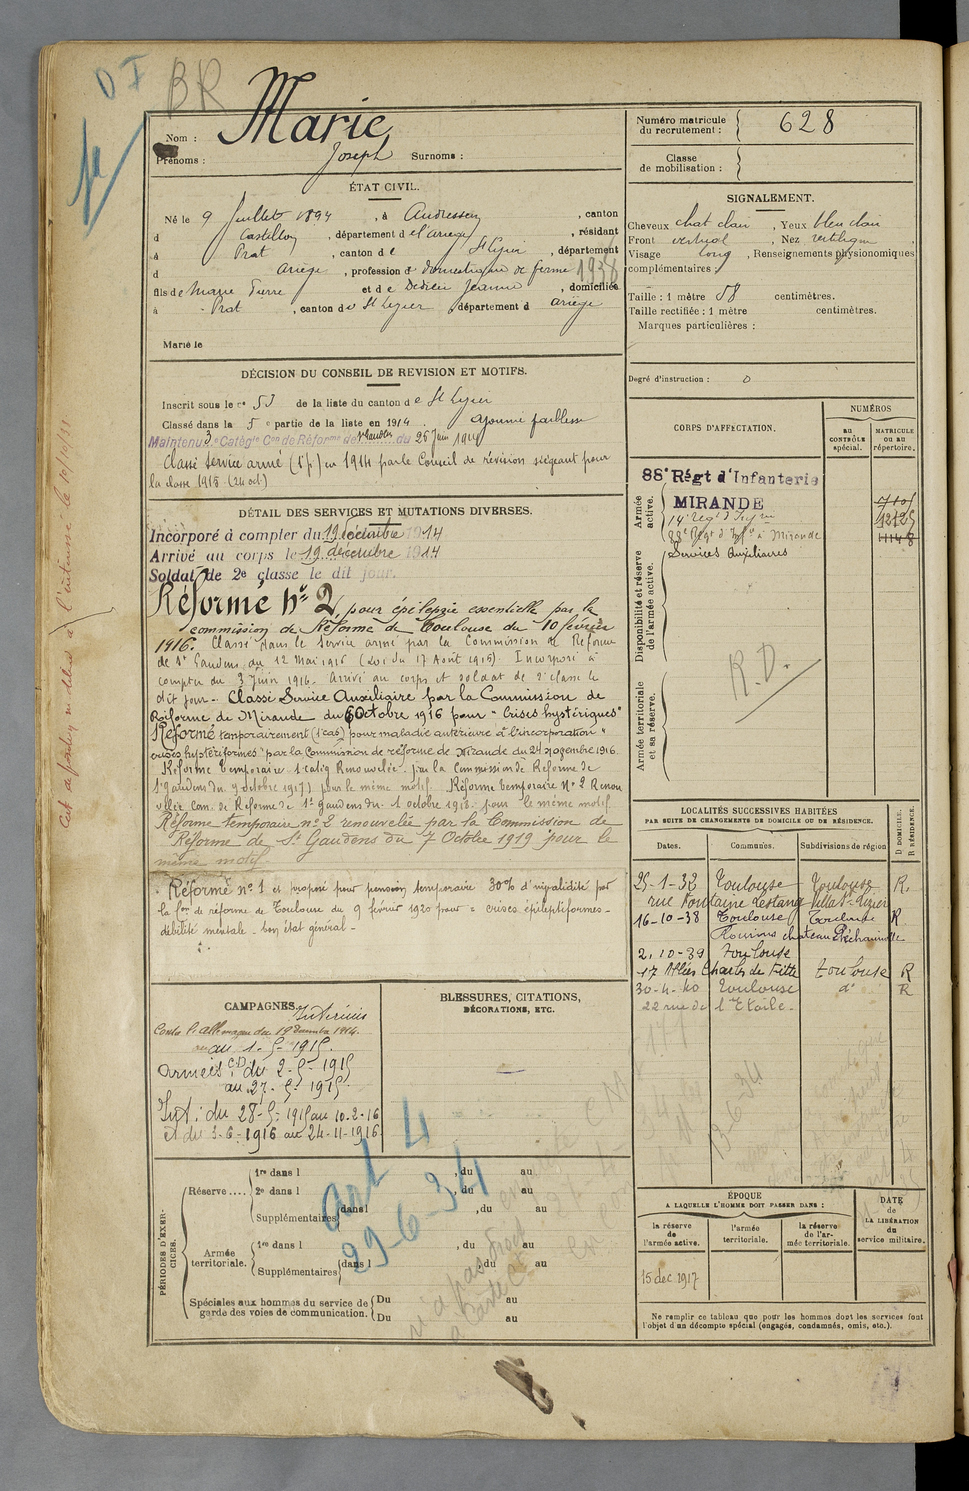 BR
Marie
Nom :
Prénoms : Joseph Surnoms :
ÉTAT CIVIL.
Né le 9 Juillet 1894, à Audressein, canton
d Castillon, département de l'ariège, résidant
à Prat, canton de St Lizier, département
d ariège, profession de domestique de ferme 1938
fils de Marie Pierre et de Dedieu Jeanne, domiciliés
à Prat, canton de St Lizier, département d ariège
Marié le
DÉCISION DU CONSEIL DE REVISION ET MOTIFS.
Inscrit sous le no 53 de la liste du canton de St Lizier
Classé dans la 5e partie de la liste en 1914 ajourné faiblesse
Maintenu 3e Catégie Con de Réforme de du 25 Juin 19
Classé service armé (1 p) en 1914 par le Conseil de révision siégeant pour
la classe 1915 (24 oct)
DÉTAIL DES SERVICES ET MUTATIONS DIVERSES.
Incorporé à compter du 19 décembre 1914
Arrivé au corps le 19 décembre 1914
Soldat de 2e classe le dit jour.
Réformé No 2, pour épilepsie essentielle par la
commission de Réforme de Toulouse du 10 février
1916. Classé dans le service armé par la Commission de Réforme
de St Gaudens du 12 Mai 1916 (Loi du 17 Août 1915). Incorporé à
compter du 3 Juin 1916. Arrivé au corps et soldat de 2e classe le
dit jour. Classé Service Auxiliaire par la Commission de
Réforme de Mirande du 6 Octobre 1916 pour "Crises hystériques"
Réformé temporairement (1e cat) pour maladie antérieure à l'incorporation "
crises hystériformes" par la Commission de réforme de Mirande du 24 novembre 1916
Réforme temporaire 1e catég Renouvelée par la Commission de Réforme de
St Gaudens du 9 octobre 1917 pour le même motif. Réforme temporaire No 2 Renou
vellée Com. de Réforme de St Gaudens du 1 octobre 1918 pour le même motif
Réforme temporaire no 2 renouvelée par la Commission de
Réforme de St Gaudens du 7 Octobre 1919 pour le
même motif.
Réformé no 1 et proposé pour pension temporaire 30% d'invalidité par
la Con de réforme de Toulouse du 9 février 1920 pour = crises épileptiformes -
débilité mentale - bon état général -
CAMPAGNES.
Intérieur
Contre l'allemagne du 19 décembre 1914
au 1-5-1915.
Armées C.D. du 2-5-1915
au 27-5-1915
Int: du 28-5-1915 au 10-2-16
et du 3-6-1916 au 24-11-1916
BLESSURES, CITATIONS,
DÉCORATIONS, ETC.
PÉRIODES D'EXERCICES.
Réserve ....
1re dans l , du au
2e dans l , du au
Supplémentaires dans l , du au
Armée territoriale.
1re dans l , du au
Supplémentaires dans l , du au
Spéciales aux hommes du service de garde des voies de communication.
Du au
Du au
art 4
29-6-34
Numéro matricule du recrutement : 628
Classe de mobilisation :
SIGNALEMENT.
Cheveux chat clair, Yeux bleu clair
Front vertical, Nez rectiligne,
Visage long, Renseignements physionomiques
complémentaires :
Taille : 1 mètre 58 centimètres.
Taille rectifiée : 1 mètre centimètres.
Marques particulières :
Degré d'instruction : 0
CORPS D'AFFECTATION.
NUMÉROS
au CONTRÔLE spécial.
MATRICULE ou au répertoire.
Armée active.
88e Régt d'Infanterie
MIRANDE
14e Régt d'Infrie
88e Régt d'Infie à Mirande
Services Auxiliaires
Disponibilité et réserve de l'armée active.
R.D.
Armée territoriale et sa réserve.
LOCALITÉS SUCCESSIVES HABITÉES
PAR SUITE DE CHANGEMENTS DE DOMICILE OU DE RÉSIDENCE.
D DOMICILE. R RÉSIDENCE.
Dates. Communes. Subdivisions de région
25-1-32 Toulouse Toulouse R.
rue Fontaine Lestang
16-10-38 Toulouse Toulouse R
2.10-39 Toulouse
17 Allées Charles de Fitte Toulouse R
30-4-40 Toulouse do R
22 rue de l'Etoile.
13-6-34
ÉPOQUE
A LAQUELLE L'HOMME DOIT PASSER DANS :
DATE de LA LIBÉRATION du service militaire.
la réserve de l'armée active.
l'armée territoriale.
la réserve de l'armée territoriale.
15 dec 1917
Ne remplir ce tableau que pour les hommes dont les services font
l'objet d'un décompte spécial (engagés, condamnés, omis, etc.).